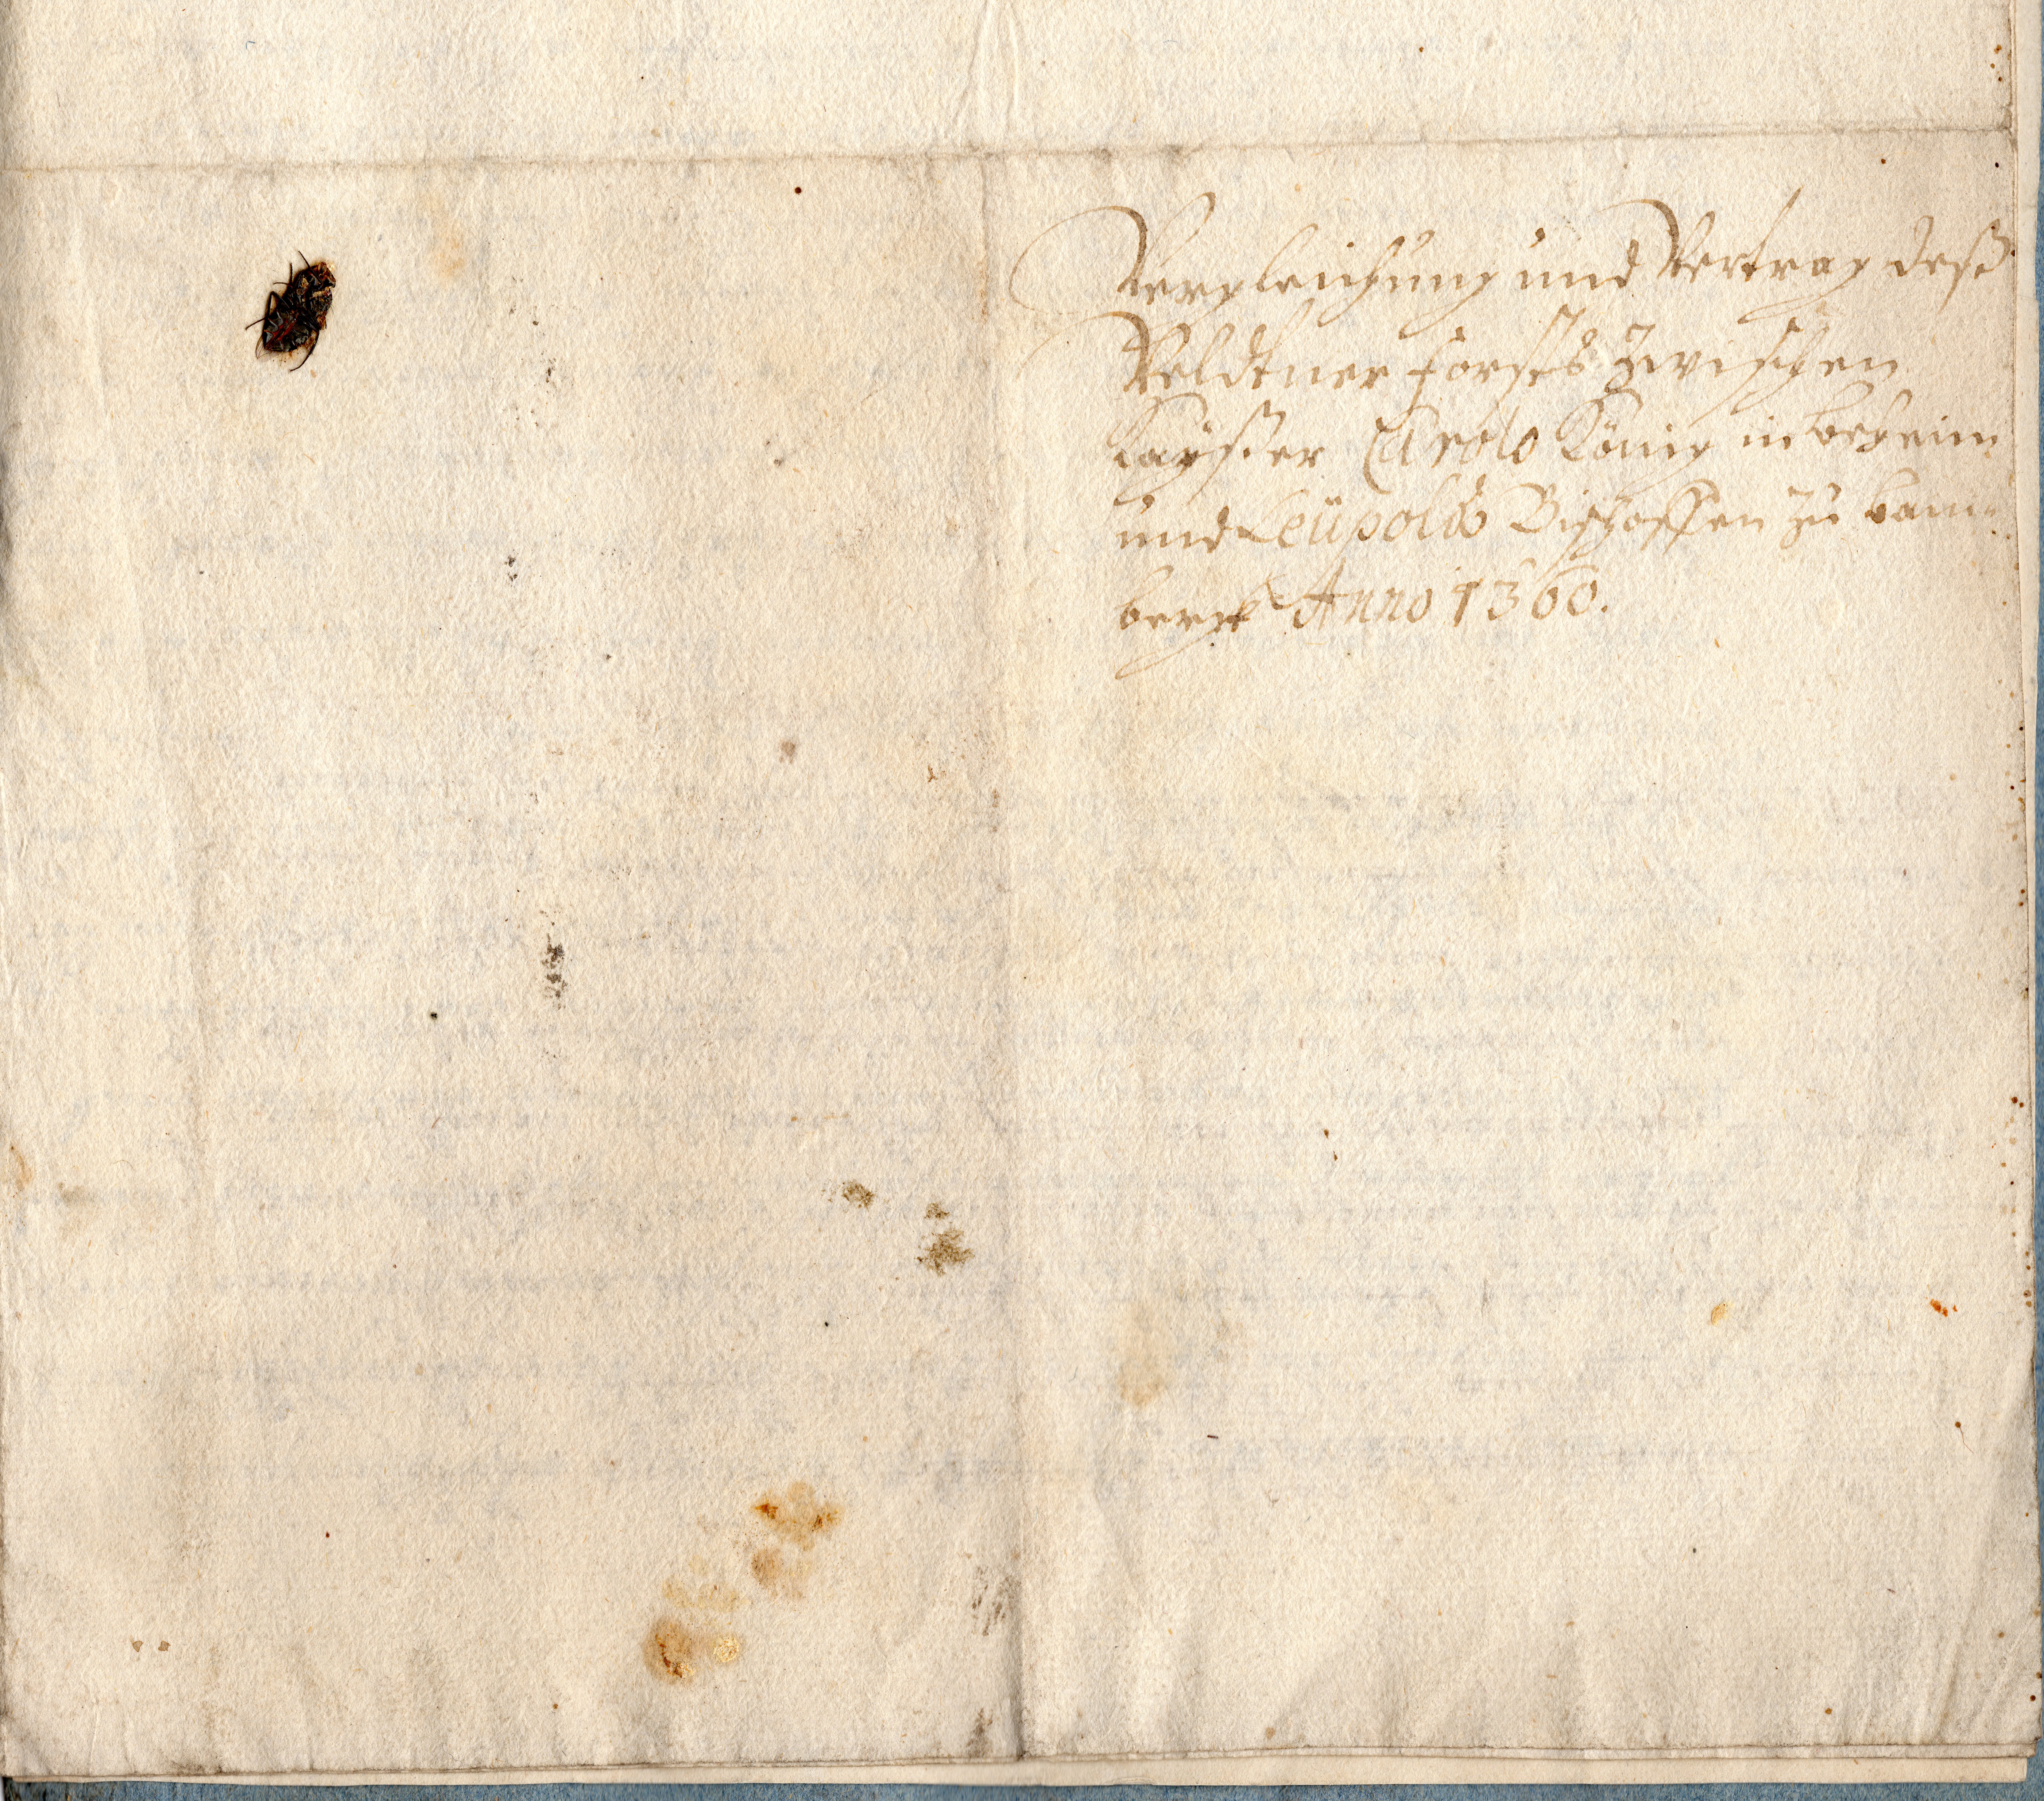 Vergleichung und Vertrag deß
Veldtner Forsts zwischen
Kayßer Carolo König in Beheim
und Leüpoldo Bischoffen zu Bam-
berg Anno 1360.